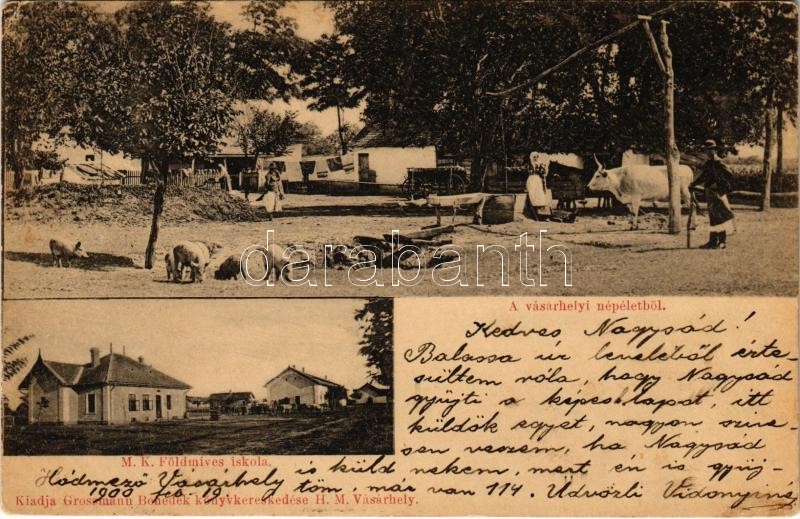 darabanth
A vásárhelyi népéletből.
Kedves Nagysád!
Balassa úr leveléből érte-
sültem róla, hogy Nagysád
gyűjti a képeslapot, itt
küldök egyet, nagyon szive-
sen veszem, ha Nagysád
M. K. Földmives iskola.
is küld nekem, mert én is gyűj-
Hódmező Vásárhely
töm, már van 114. Üdvözli Vidonyiné
1900 feb. 19
Kiadja Grossmann Benedek könyvkereskedése H. M. Vásárhely.